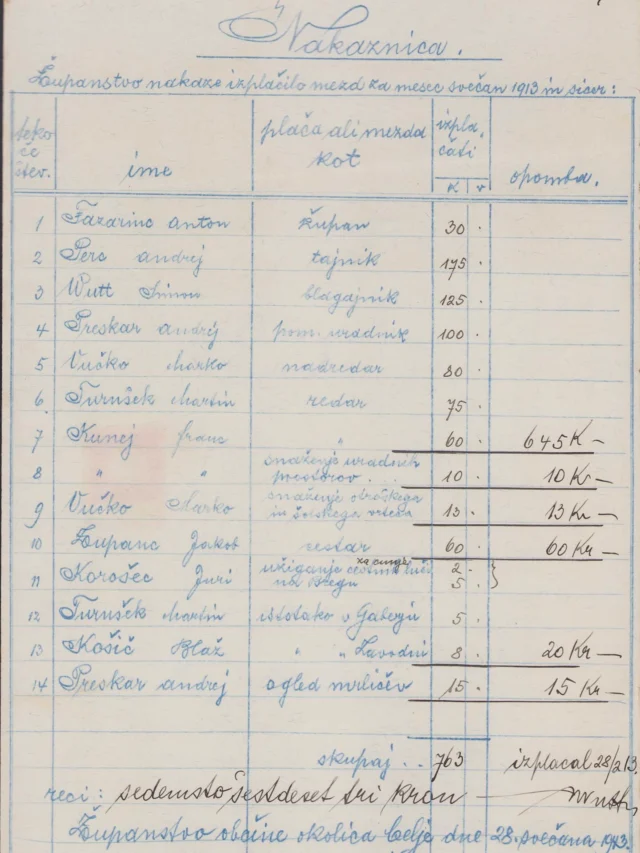 Nakaznica.
Županstvo nakaže izplačilo mezd za mesec svečan 1913 in sicer:
teko če štev. ime plača ali mezda kot izpla. čati K v opomba.
1 Fazarinc Anton župan 30 .
2 Perc Andrej tajnik 175 .
3 Wutt Simon blagajnik 125 .
4 Preskar Andrej pom. uradnik 100 .
5 Vučko Marko nadredar 80 .
6 Turnšek Martin redar 75 .
7 Kunej Franc " 60 . 645 K —
8 " " snaženje uradnih prostorov . . 10 . 10 K —
9 Vučko Marko snaženje otroškega in šolskega vrtca 13 . 13 Kr —
10 Županc Jakob cestar 60 . 60 Kr —
11 Korošec Juri užiganje cestnih luči 2 .
na Bregu 5 . }
12 Turnšek Martin istotako v Gaberju 5 .
13 Košič Blaž " " Zavodni 8 . 20 Kr —
14 Preskar Andrej ogled mrličev 15 . 15 Kr —
skupaj . . 763 izplacal 28/2 13.
reci : sedemsto šestdeset tri kron —
Županstvo občine okolica Celje dne 28. svečana 1913.